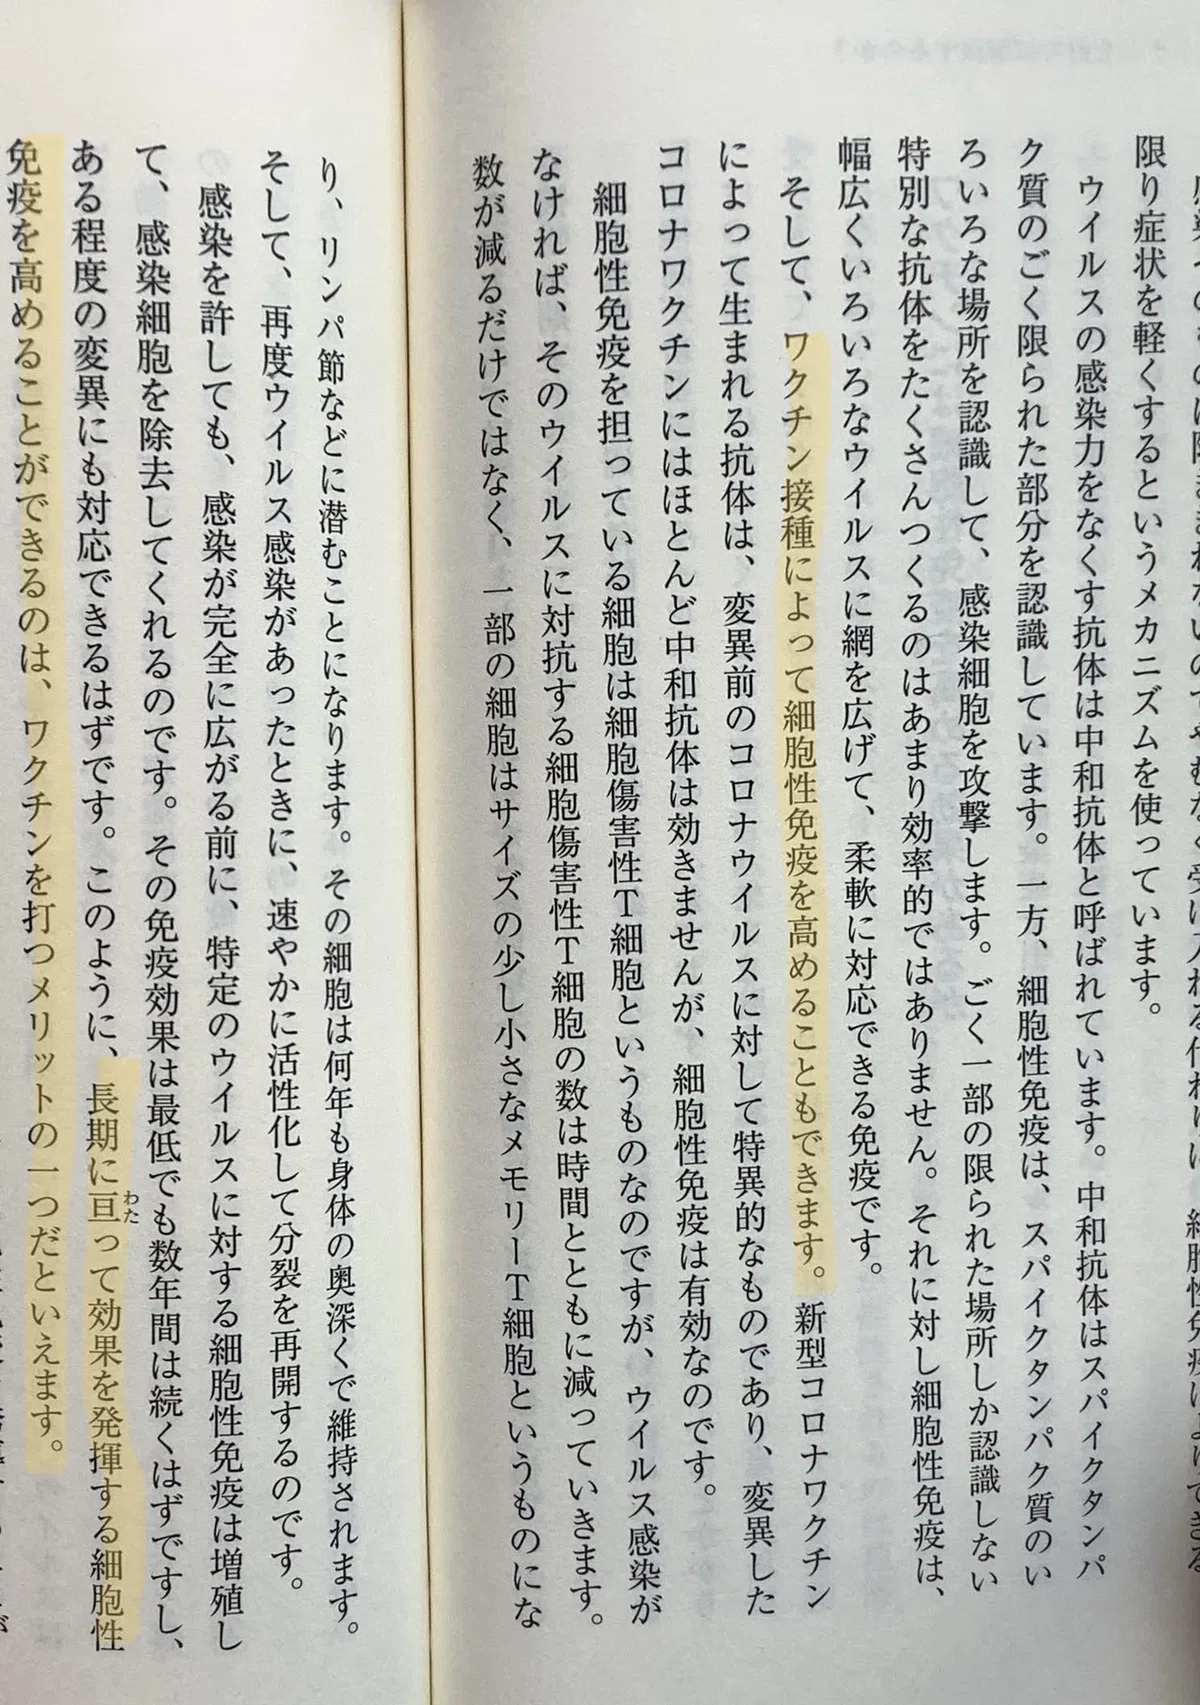 限り症状を軽くするというメカニズムを使っています。
ウイルスの感染力をなくす抗体は中和抗体と呼ばれています。中和抗体はスパイクタンパ
ク質のごく限られた部分を認識しています。一方、細胞性免疫は、スパイクタンパク質のい
ろいろな場所を認識して、感染細胞を攻撃します。ごく一部の限られた場所しか認識しない
特別な抗体をたくさんつくるのはあまり効率的ではありません。それに対し細胞性免疫は、
幅広くいろいろなウイルスに網を広げて、柔軟に対応できる免疫です。
そして、ワクチン接種によって細胞性免疫を高めることもできます。新型コロナワクチン
によって生まれる抗体は、変異前のコロナウイルスに対して特異的なものであり、変異した
コロナワクチンにはほとんど中和抗体は効きませんが、細胞性免疫は有効なのです。
細胞性免疫を担っている細胞は細胞傷害性T細胞というものなのですが、ウイルス感染が
なければ、そのウイルスに対抗する細胞傷害性T細胞の数は時間とともに減っていきます。
数が減るだけではなく、一部の細胞はサイズの少し小さなメモリーT細胞というものにな
り、リンパ節などに潜むことになります。その細胞は何年も身体の奥深くで維持されます。
そして、再度ウイルス感染があったときに、速やかに活性化して分裂を再開するのです。
感染を許しても、感染が完全に広がる前に、特定のウイルスに対する細胞性免疫は増殖し
て、感染細胞を除去してくれるのです。その免疫効果は最低でも数年間は続くはずですし、
ある程度の変異にも対応できるはずです。このように、長期に亘って効果を発揮する細胞性
わた
免疫を高めることができるのは、ワクチンを打つメリットの一つだといえます。